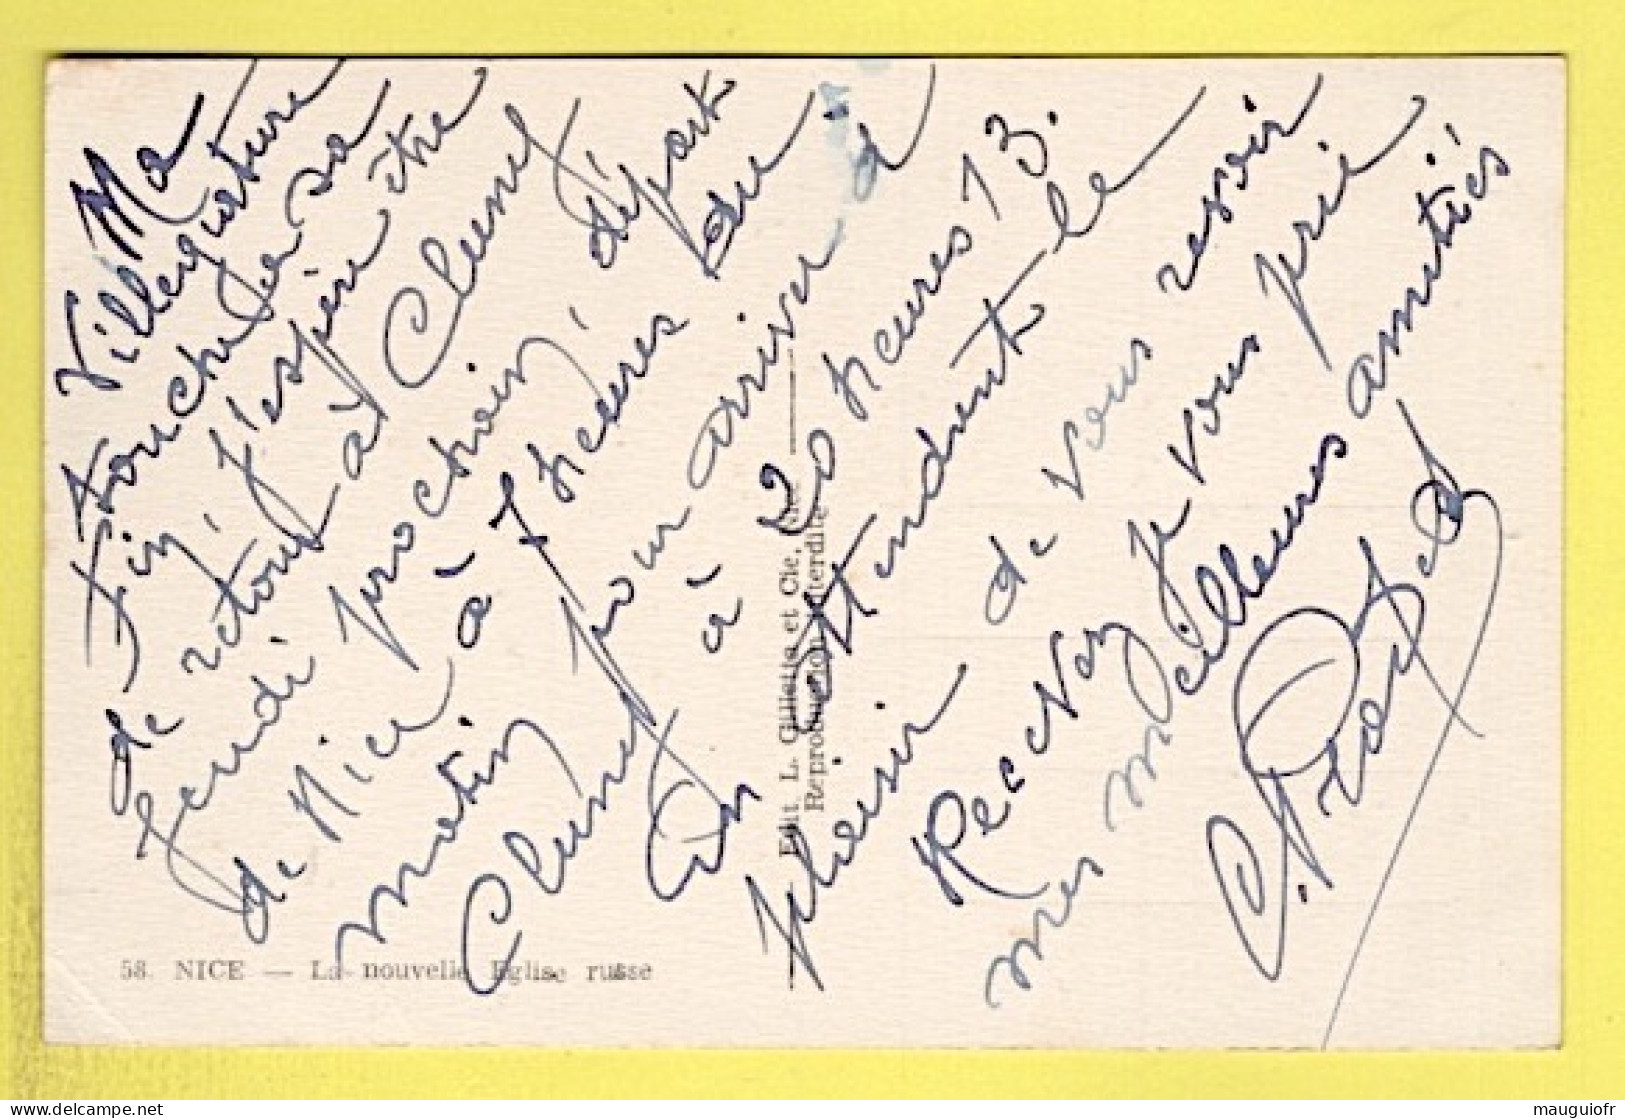 Ma
Villegiature
touche à sa
Fin, j'espère être
de retour à Cluny
Jeudi prochain départ
de Nice à 7 heures du
matin pour arriver à
Cluny à 20 heures 13.
En attendant le
plaisir de vous revoir
Recevez je vous prie
mes meilleures amitiés
58. NICE — La nouvelle Eglise russe
Edit. L. Gilletta et Cie, Nice
Reproduction interdite
mauguiofr